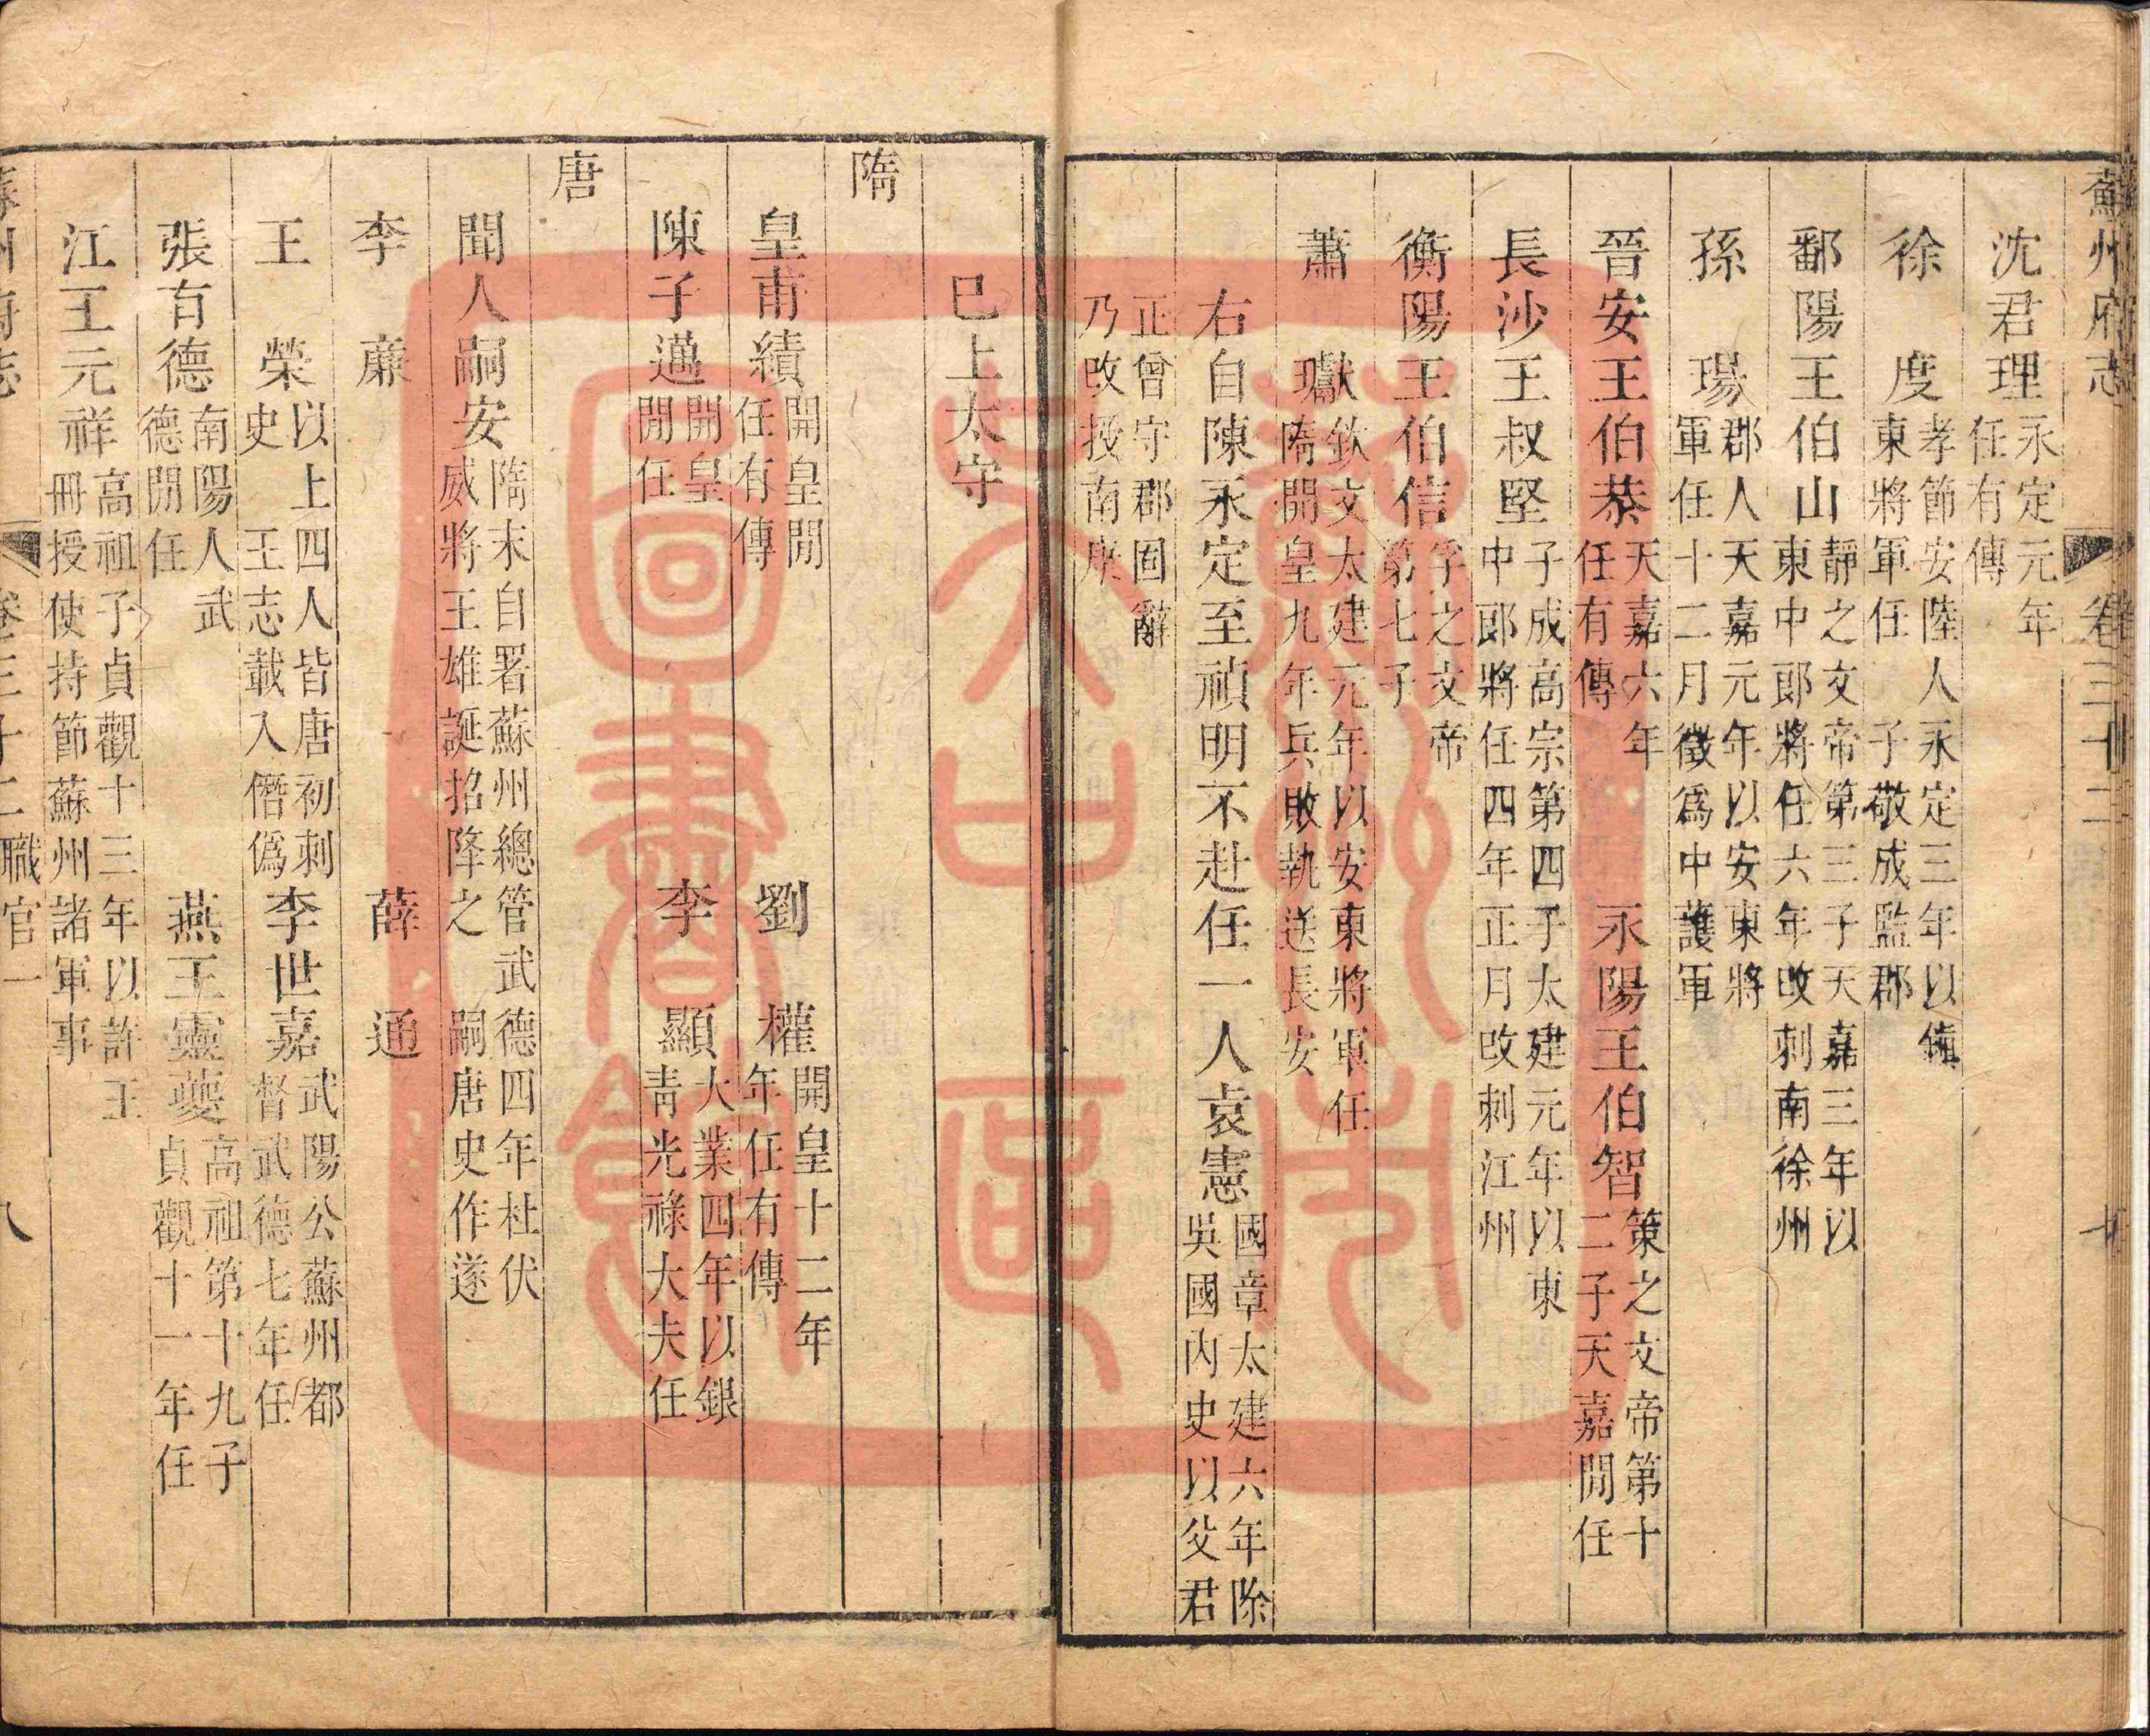 蘇州府志 卷三十二 七
沈君理永定元年任有傳
徐度孝節安陸人永定三年以鎮東將軍任 子敬成監郡
鄱陽王伯山靜之文帝第三子天嘉三年以東中郎將任六年改刺南徐州
孫瑒郡人天嘉元年以安東將軍任十二月徵爲中護軍
晉安王伯恭天嘉六年任有傳 永陽王伯智策之文帝第十二子天嘉閒任
長沙王叔堅子成高宗第四子太建元年以東中郎將任四年正月改刺江州
衡陽王伯信孚之文帝第七子
蕭瓛欽文太建元年以安東將軍任隋開皇九年兵敗執送長安
右自陳永定至禎明不赴任一人袁憲國章太建六年除吳國內史以父君
正曾守郡固辭乃改授南康
已上太守
隋
皇甫績開皇閒任有傳 劉權開皇十二年年任有傳
陳子邁開皇閒任 李顯大業四年以銀青光祿大夫任
唐
聞人嗣安隋末自署蘇州總管武德四年杜伏威將王雄誕招降之 嗣唐史作遂
李蔗 薛通
王榮以上四人皆唐初刺史 王志載入僭僞 李世嘉武陽公蘇州都督武德七年任
張有德南陽人武德閒任 燕王靈夔高祖第十九子貞觀十一年任
江王元祥高祖子貞觀十三年以許王冊授使持節蘇州諸軍事
蘇州府志 卷三十二職官一 八